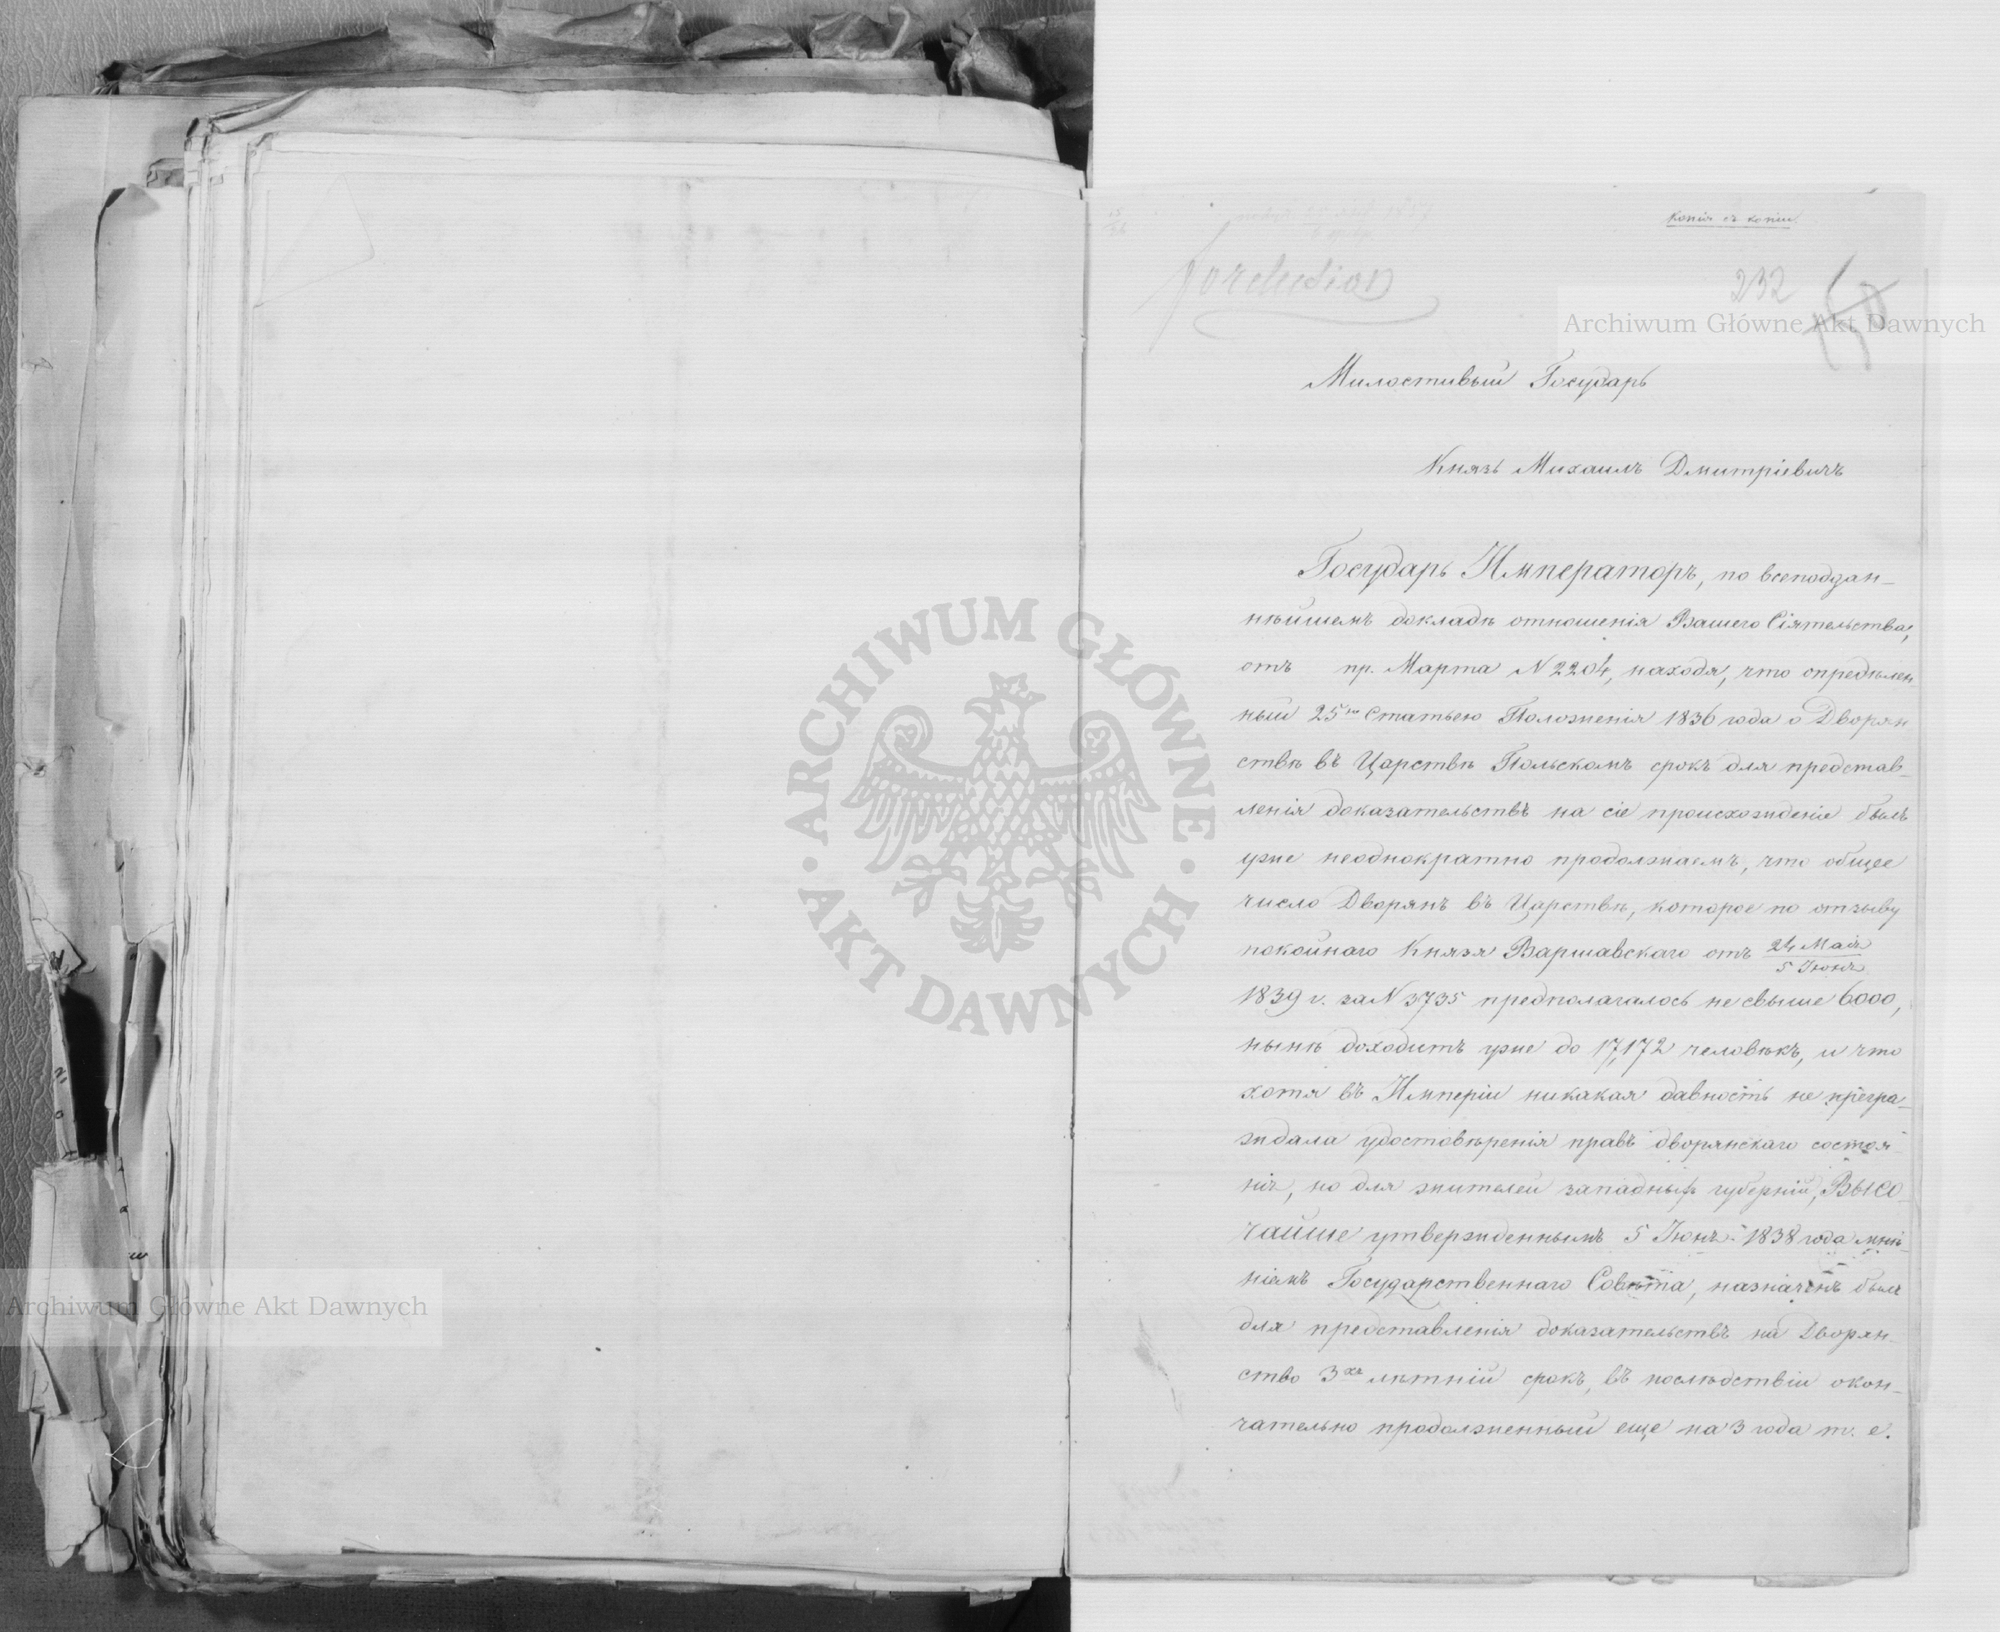 Копія съ копіи
forclusion
232
Милостивый Государь
Князь Михаилъ Дмитріевичъ
Государь Императоръ, по всеподдан-
нѣйшемъ докладѣ отношенія Вашего Сіятельства,
отъ пр. Марта N 2204, находя, что опредѣлен-
ный 25ю Статьею Положенія 1836 года о Дворян
ствѣ въ Царствѣ Польскомъ срокъ для представ-
ленія доказательствъ на сіе происхожденіе былъ
уже неоднократно продолжаемъ, что общее
число Дворянъ въ Царствѣ, которое по отзыву
покойнаго Князя Варшавскаго отъ 24 Маія / 5 Іюня
1839 г. за N 3735 предполагалось не свыше 6000,
нынѣ доходитъ уже до 17,172 человѣкъ, и что
хотя въ Имперіи никакая давность не прегра-
ждала удостовѣренія правъ дворянскаго состоя-
нія, но для жителей западныхъ губерній, Высо
чайше утвержденнымъ 5 Іюня 1838 года мнѣ-
ніемъ Государственнаго Совѣта, назначенъ былъ
для представленія доказательствъ на Дворян-
ство 3хъ лѣтній срокъ, въ послѣдствіи окон-
чательно продолженный еще на 3 года т. е.
Archiwum Główne Akt Dawnych
ARCHIWUM GŁÓWNE · AKT DAWNYCH ·
Archiwum Główne Akt Dawnych